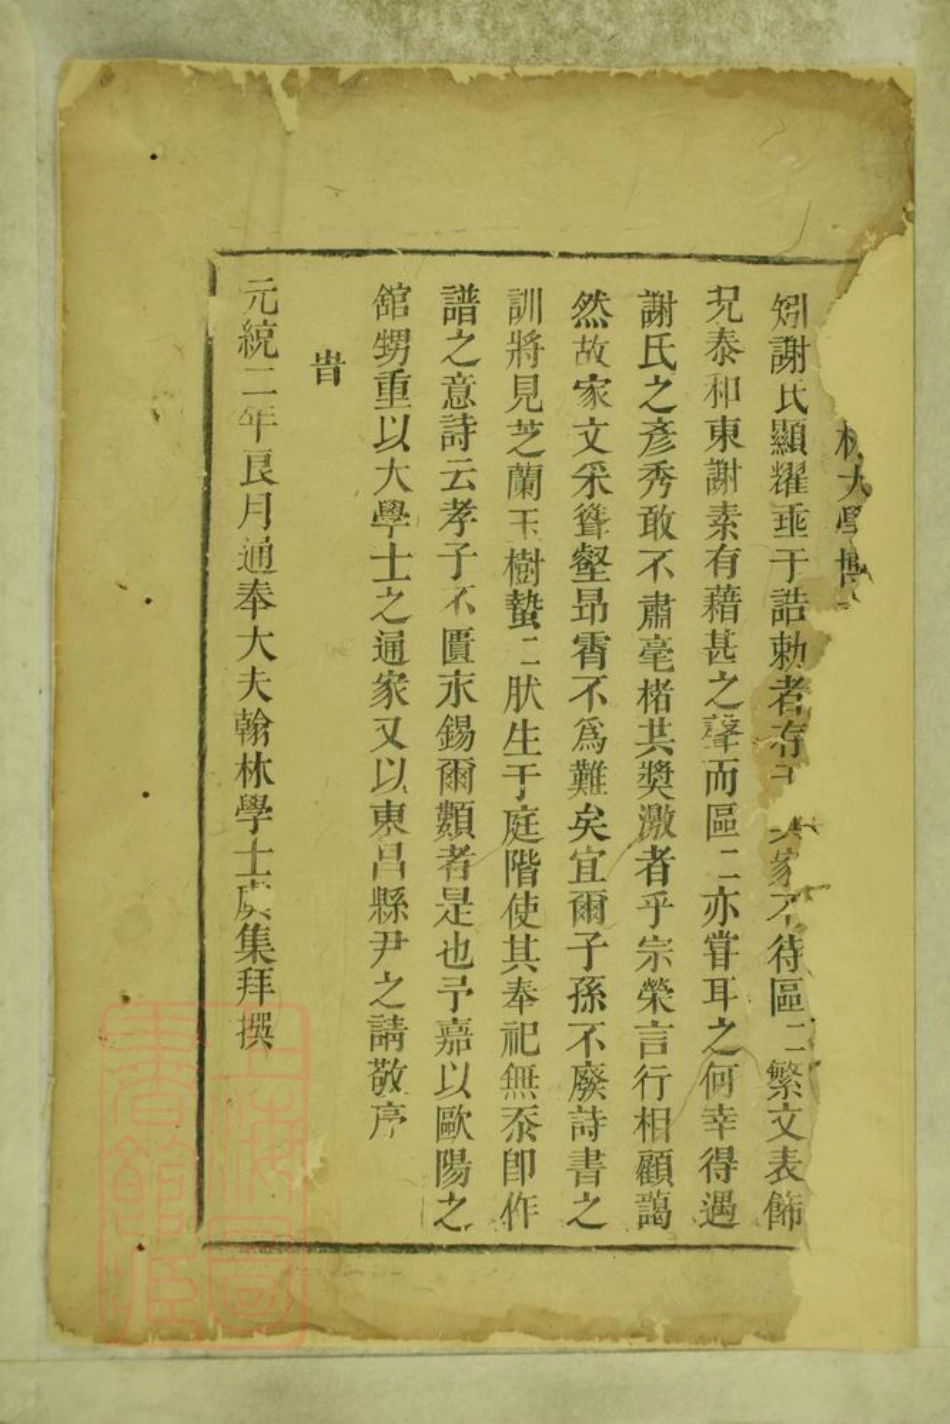 林大學博
矧謝氏顯耀垂于誥勅者存
家不待區二繁文表飾
况泰和東謝素有藉甚之聲而區二亦甞耳之何幸得遇
謝氏之彥秀敢不肅毫楮其奬激者乎宗榮言行相顧藹
然故家文采聳壑昂霄不爲難矣宜爾子孫不廢詩書之
訓將見芝蘭玉樹蟄二肰生于庭階使其奉祀無忝卽作
譜之意詩云孝子不匱永錫爾類者是也予嘉以歐陽之
舘甥重以大學士之通家又以東昌縣尹之請敬序
旹
元統二年良月通奉大夫翰林學士虞集拜撰
上海圖書館藏